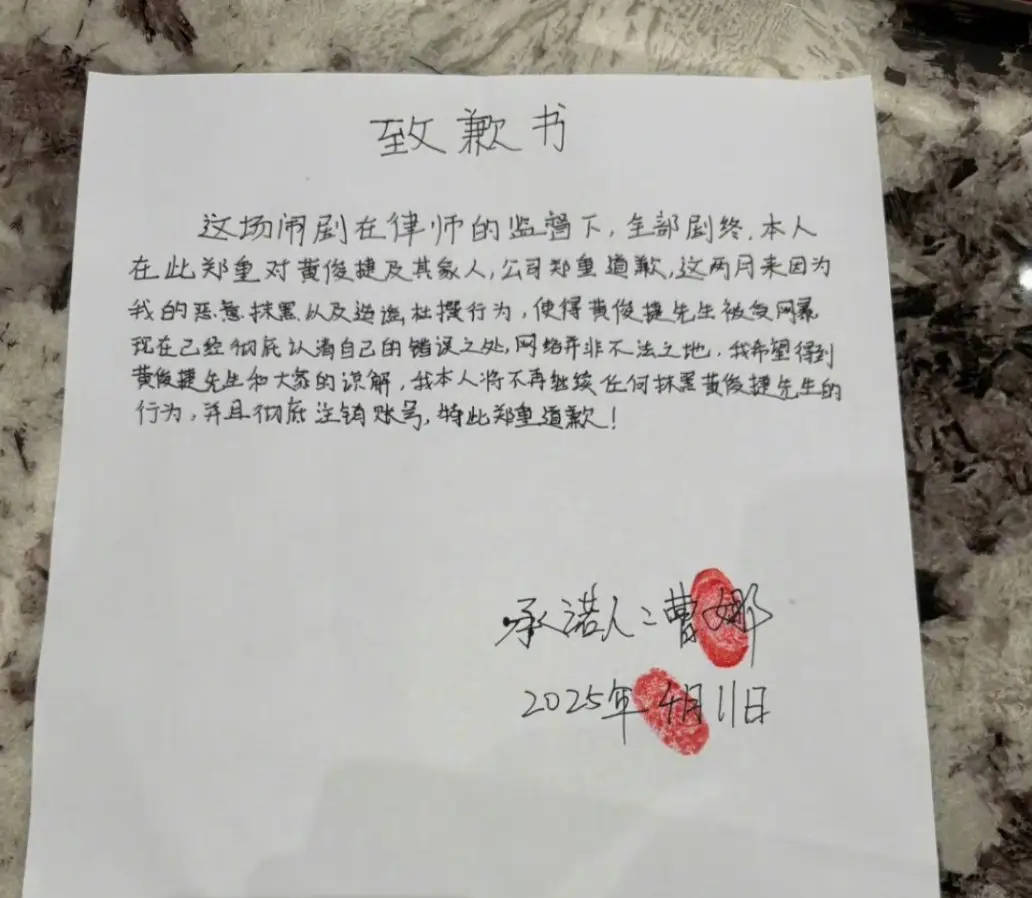 致歉书
这场闹剧在律师的监督下,全部剧终,本人
在此郑重对黄俊捷及其家人,公司郑重道歉,这两月来因为
我的恶意抹黑以及造谣杜撰行为,使得黄俊捷先生被受网暴
现在已经彻底认清自己的错误之处,网络并非不法之地,我希望得到
黄俊捷先生和大家的谅解,我本人将不再继续任何抹黑黄俊捷先生的
行为,并且彻底注销账号,特此郑重道歉!
承诺人:曹娜
2025年4月11日